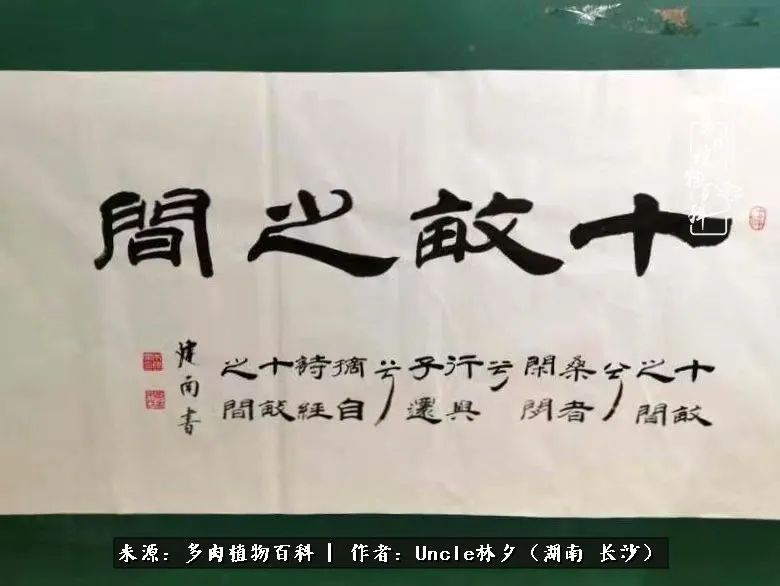 十畝之間
十畝
之間
兮
桑者
閑閑
兮
行與
子還
兮
摘自
詩經
十畝
之間
南書
来源：多肉植物百科 | 作者：Uncle林夕（湖南 长沙）